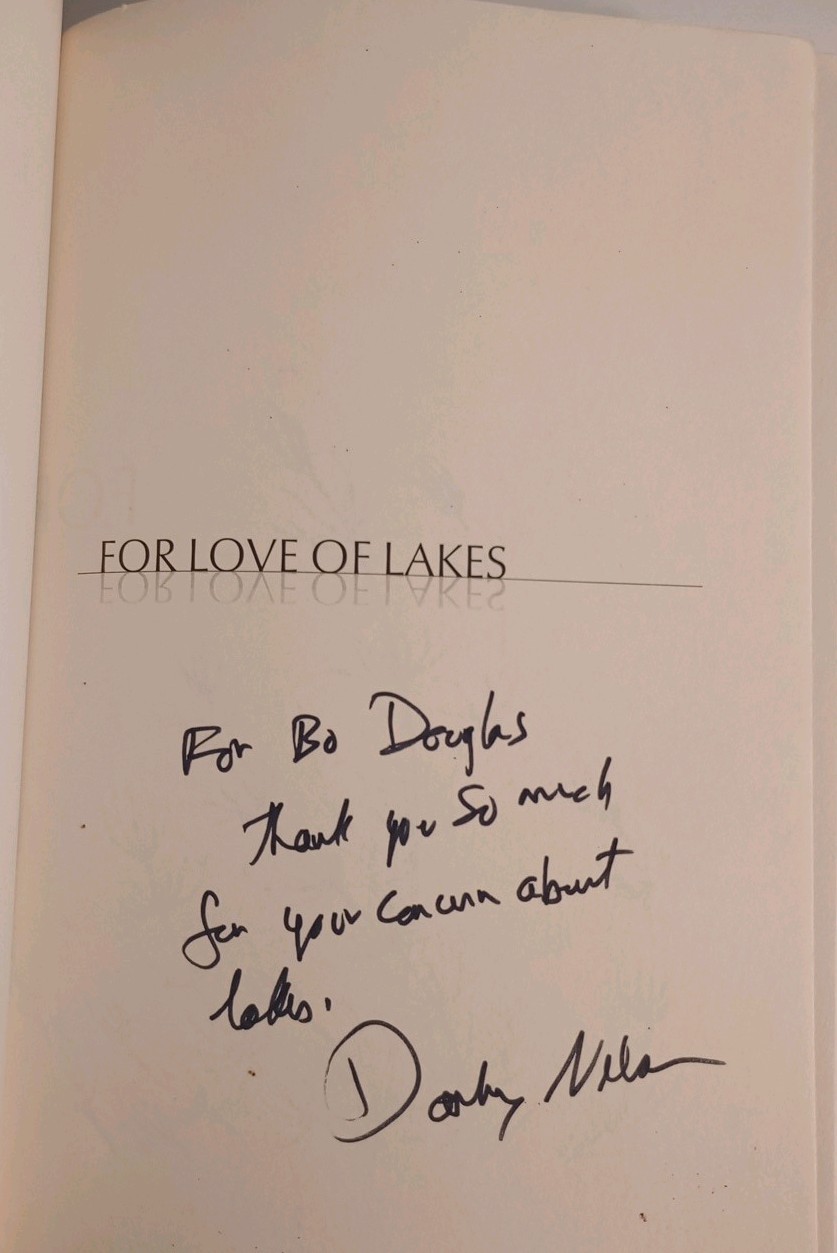 FOR LOVE OF LAKES
For Bo Douglas
Thank you so much
for your concern about
lakes.
Darby Nelson